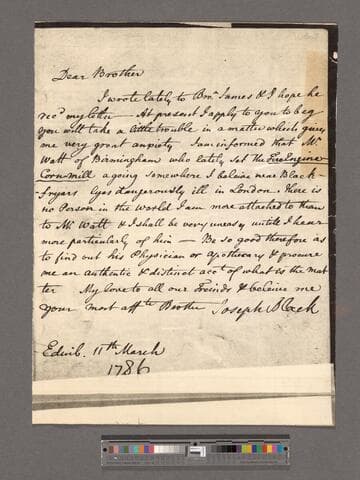 Dear Brother
I wrote lately to Bro.r James & I hope he
rec.d my letter — At present I apply to you to beg
you will take a little trouble in a matter which gives
me very great anxiety I am informed that Mr
Watt of Birmingham who lately set the Fire Engine
Cornmill a going somewhere I beleive near Black-
-fryars lyes dangerously ill in London. There is
no Person in the World I am more attached to than
to Mr Watt & I shall be very uneasy untill I hear
more particularly of him — Be so good therefore as
to find out his Physician or Apothecary & procure
me an authentic & distinct acct of what is the mat
ter My love to all our Freinds & beleive me
your most affte Brother Joseph Black
Edinb. 11th March
1786